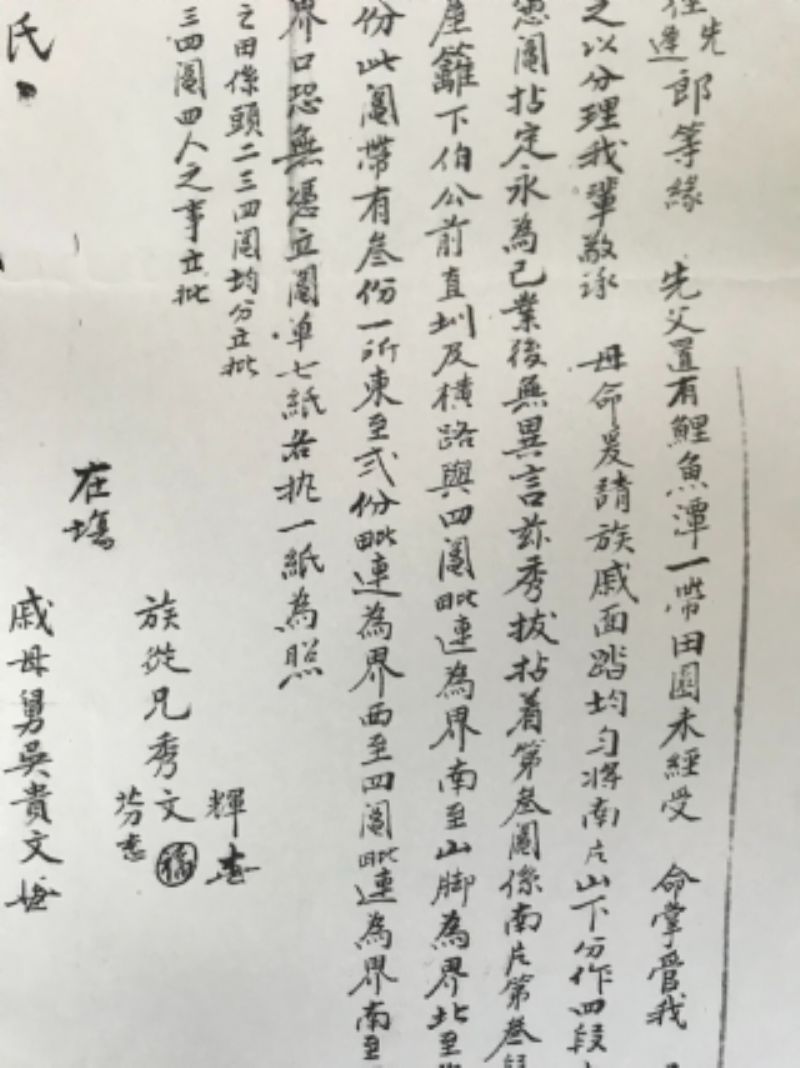 先
達郎等緣 先父置有鯉魚潭一帶田園未經受 命掌管我
之以分理我輩敬承 母命爰請族戚面踏均勻將南片山下分作四段
憑鬮拈定永為己業後無異言茲秀拔拈着第叁鬮係南片第叁段
座籬下伯公前直圳及橫路與四鬮毗連為界南至山脚為界北至
份此鬮帶有叁份一所東至弍份毗連為界西至四鬮毗連為界南至
界口恐無憑立鬮单七紙各执一紙為照
之田係頭二三四鬮均分立批
三四鬮四人之事立批
輝
在塲 族從兄秀文
芬
戚母舅吳貴文
氏